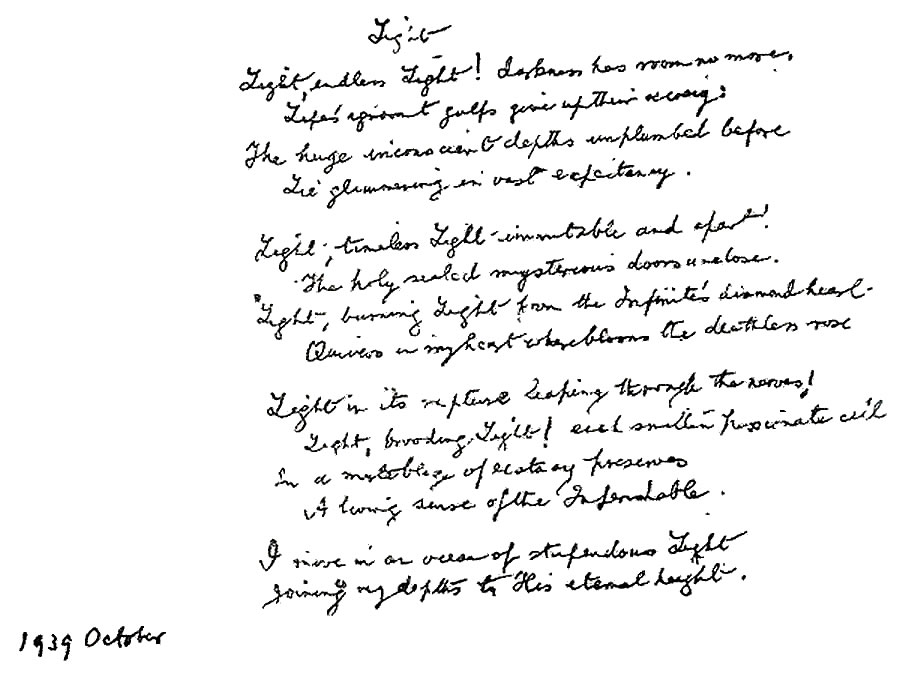 Light
Light, endless Light! darkness has room no more,
Life's ignorant gulfs give up their secrecy:
The huge inconscient depths unplumbed before
Lie glimmering in vast expectancy.
Light, timeless Light immutable and apart!
The holy sealed mysterious doors unclose.
Light, burning Light from the Infinite's diamond heart
Quivers in my heart where blooms the deathless rose
Light in its rapture leaping through the nerves!
Light, brooding Light! each smitten passionate cell
In a mute blaze of ecstasy preserves
A living sense of the Imperishable.
I move in an ocean of stupendous Light
Joining my depths to His eternal height.
1939 October